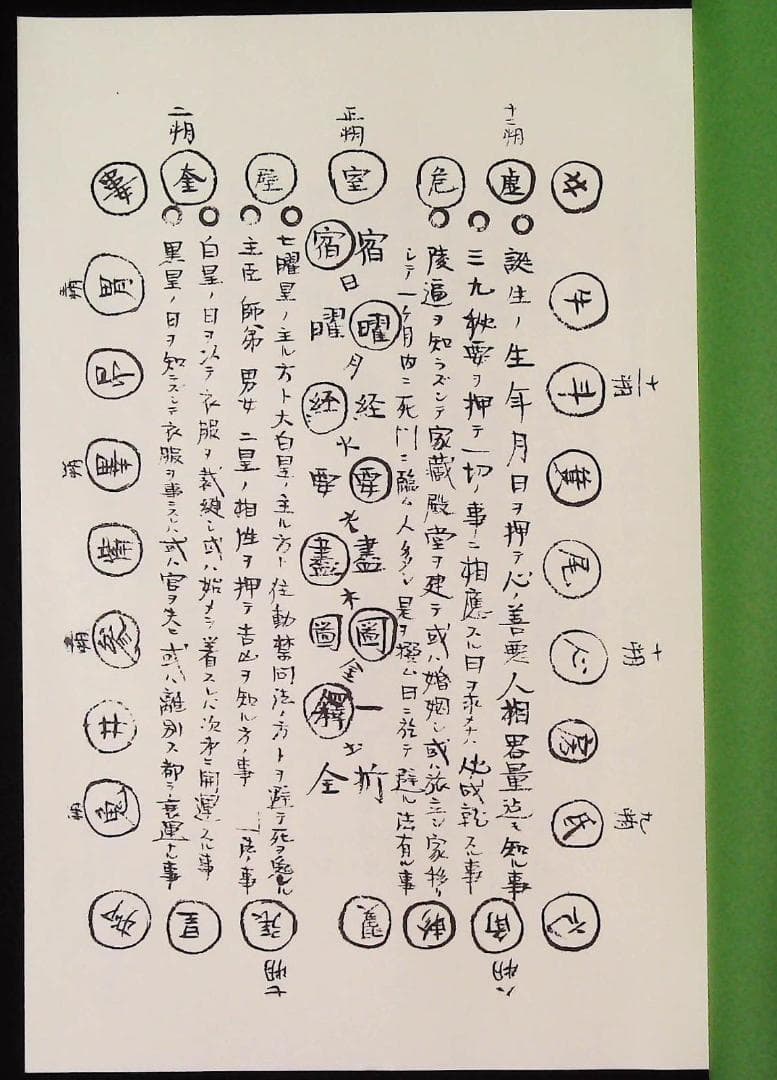 十二朔
正朔
二朔
女
虚
危
室
壁
奎
婁
誕生ノ生年月日ヲ押テ心ノ善悪人相器量迄モ知ル事
三九秘要ヲ押テ一切ノ事ニ相應スル日ヲ求メナハ成就スル事
陵逼ヲ知ラズシテ家蔵殿堂ヲ建テ或ハ婚姻シ或ハ旅立シ家移リ
シテ一ケ月内ニ死門ニ臨ム人多シ是ヲ撰ム日ニ於テ避ル法有ル事
宿曜経要盡圖一折
宿曜経要盡圖釋全
日月火水木金土
七曜星ノ主ル方ト大白星ノ主ル方ト往動禁同法ノ方トヲ避テ死ヲ免ル
主臣 師弟 男女 二星ノ相性ヲ押テ吉凶ヲ知ル方ノ事
白星ノ日ヲ以テ衣服ヲ裁縫シ或ハ始メテ着スレハ次第ニ開運スル事
黒星ノ日ヲ知ラズシテ衣服ヲ事スレハ或ハ官ヲ失ヒ或ハ離別ス都テ衰運ナル事
牛
斗
十一朔
箕
尾
心
十朔
房
氐
九朔
亢
角
八朔
軫
翼
張
七朔
星
柳
鬼
井
參
觜
畢
昴
胃